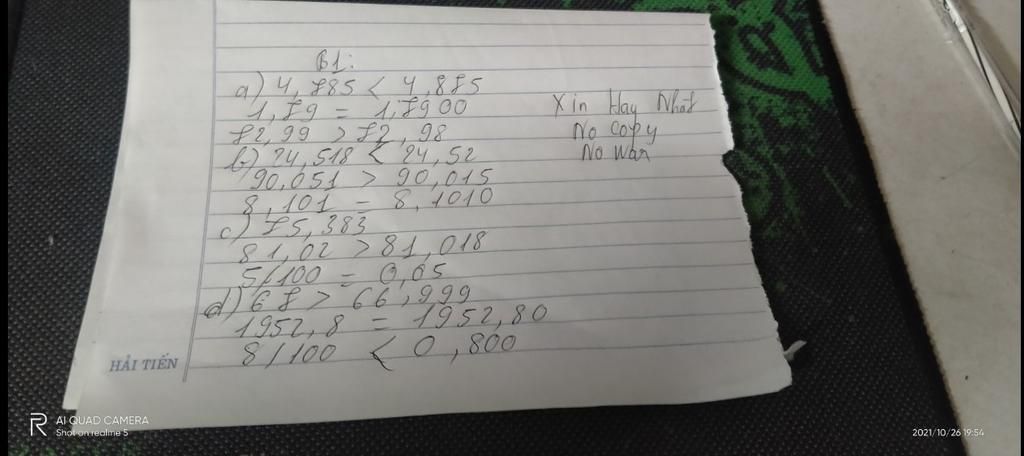 B1:
a) 4,785 < 4,875
1,79 = 1,7900
72,99 > 72,98
b) 24,518 < 24,52
90,051 > 90,015
8,101 = 8,1010
c) 75,383
81,02 > 81,018
5/100 = 0,05
d) 67 > 66,999
1952,8 = 1952,80
8/100 < 0,800
Xin Hay Nhất
No copy
No War
HẢI TIẾN
AI QUAD CAMERA
Shot on realme 5
2021/10/26 19:54